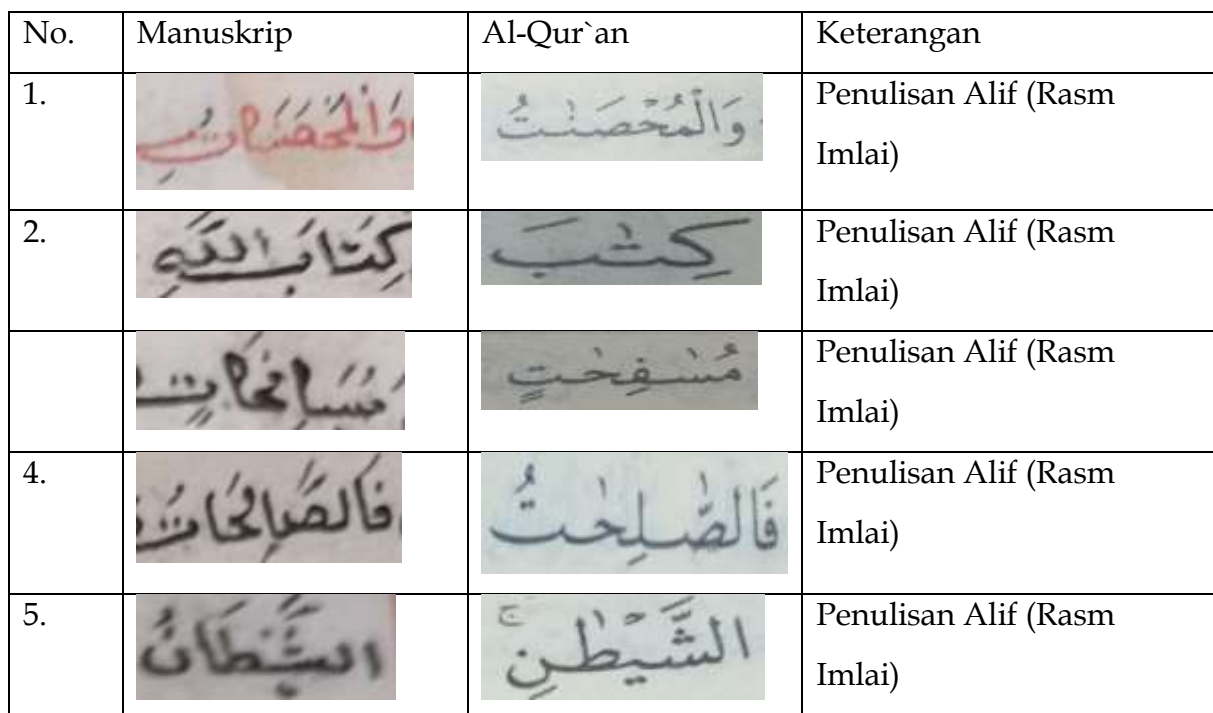 No. Manuskrip Al-Qur`an Keterangan
1. وَالْمُحْصَنَاتُ وَالْمُحْصَنٰتُ Penulisan Alif (Rasm
Imlai)
2. كِتَابَ اللهِ كِتٰبَ Penulisan Alif (Rasm
Imlai)
مُسَافِحَاتٍ مُسٰفِحٰتٍ Penulisan Alif (Rasm
Imlai)
4. فَالصَّالِحَاتُ فَالصّٰلِحٰتُ Penulisan Alif (Rasm
Imlai)
5. الشَّيْطَانِ الشَّيْطٰنِۚ Penulisan Alif (Rasm
Imlai)